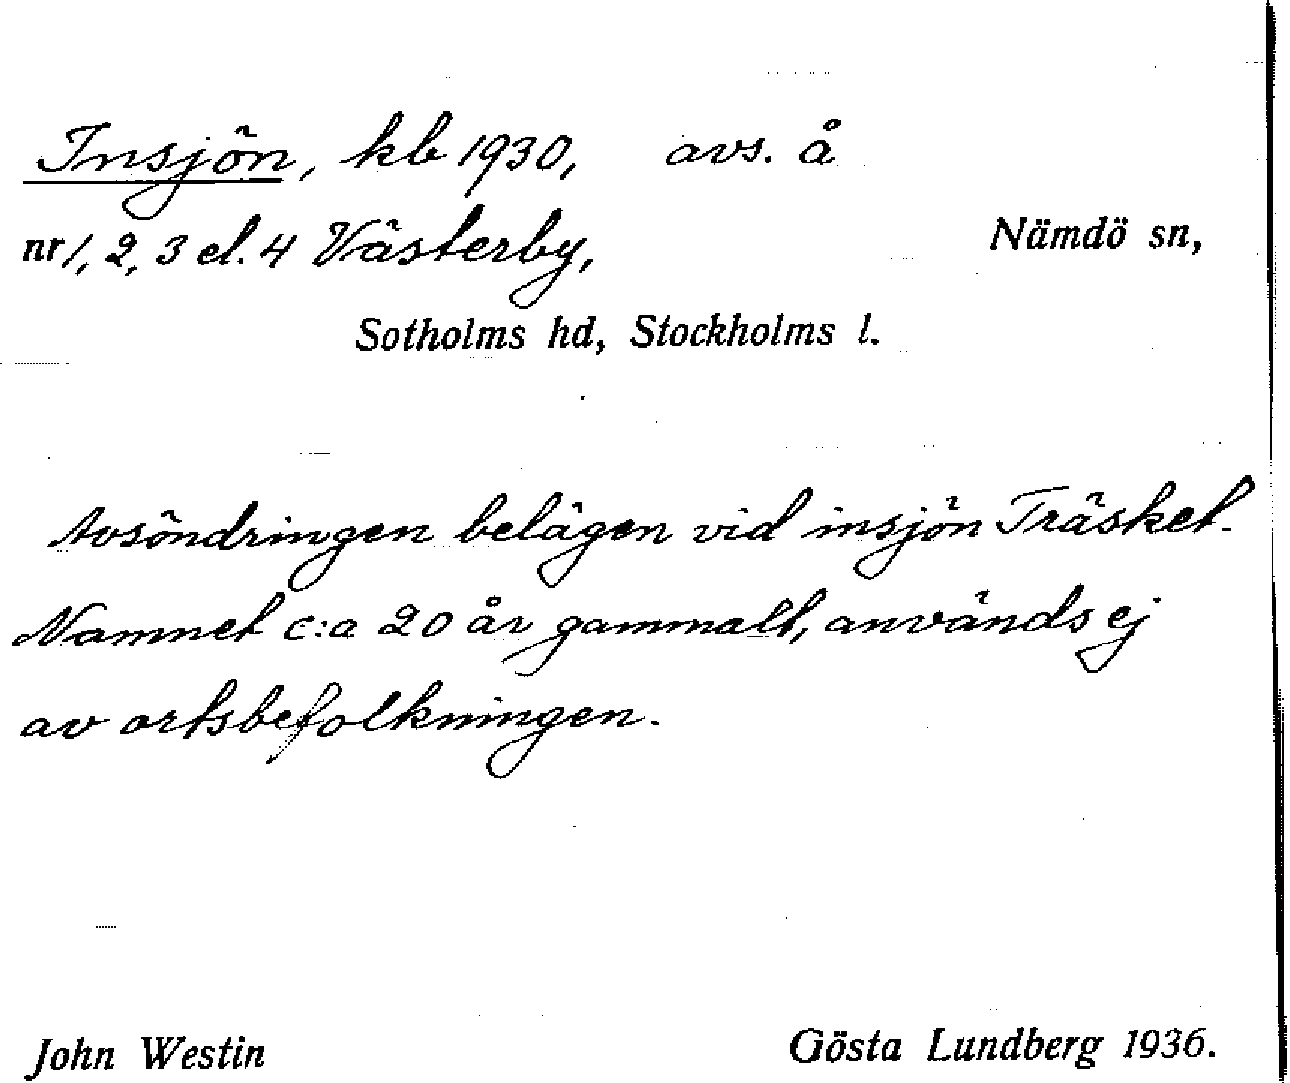 Insjön, kb 1930, avs. å
nr 1, 2, 3 el. 4 Västerby, Nämdö sn,
Sotholms hd, Stockholms l.
Avsöndringen belägen vid insjön Träsket.
Namnet c:a 20 år gammalt, används ej
av ortsbefolkningen.
John Westin Gösta Lundberg 1936.